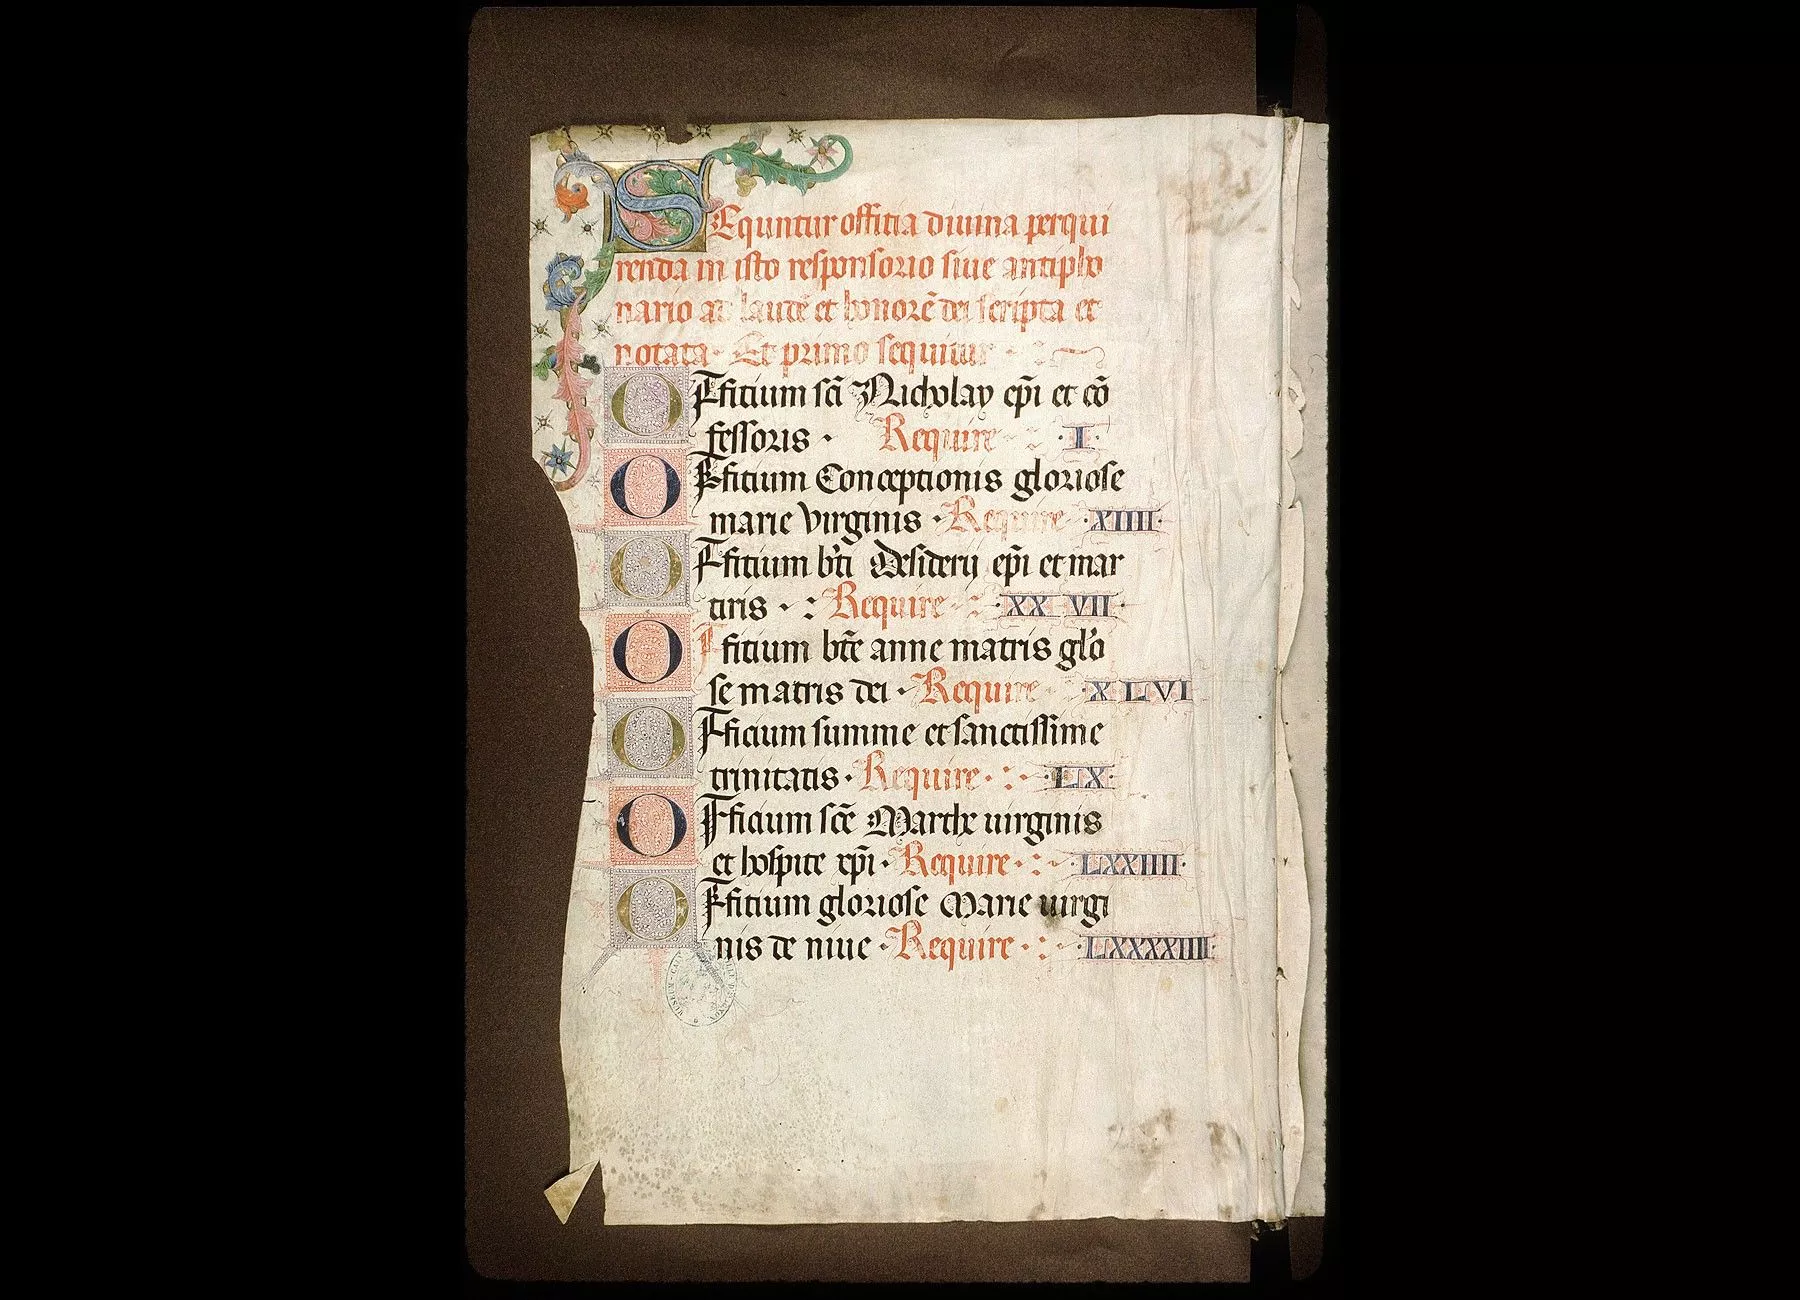 SEquntur offitia diuina perqui
renda in isto responsorio siue antipho
nario ad laudē et honorē dei scripta et
notata · Et primo sequitur
Offitium sc̄i Nicholay ep̄i et cō
fessoris · Require · I ·
Offitium Conceptionis gloriose
marie virginis · Require · XIIII ·
Offitium bt̄i Desiderij ep̄i et mar
tiris · : Require · XX VII ·
Offitium bt̄e anne matris glo
se matris dei · Require · X L VI
Officium summe et sanctissime
trinitatis · Require · : · L X ·
Officium sc̄e Marthe uirginis
et hospite xp̄i · Require · : · LXXIIII ·
Offitium gloriose Marie uirgi
nis de niue · Require · : · LXXXXIIII ·